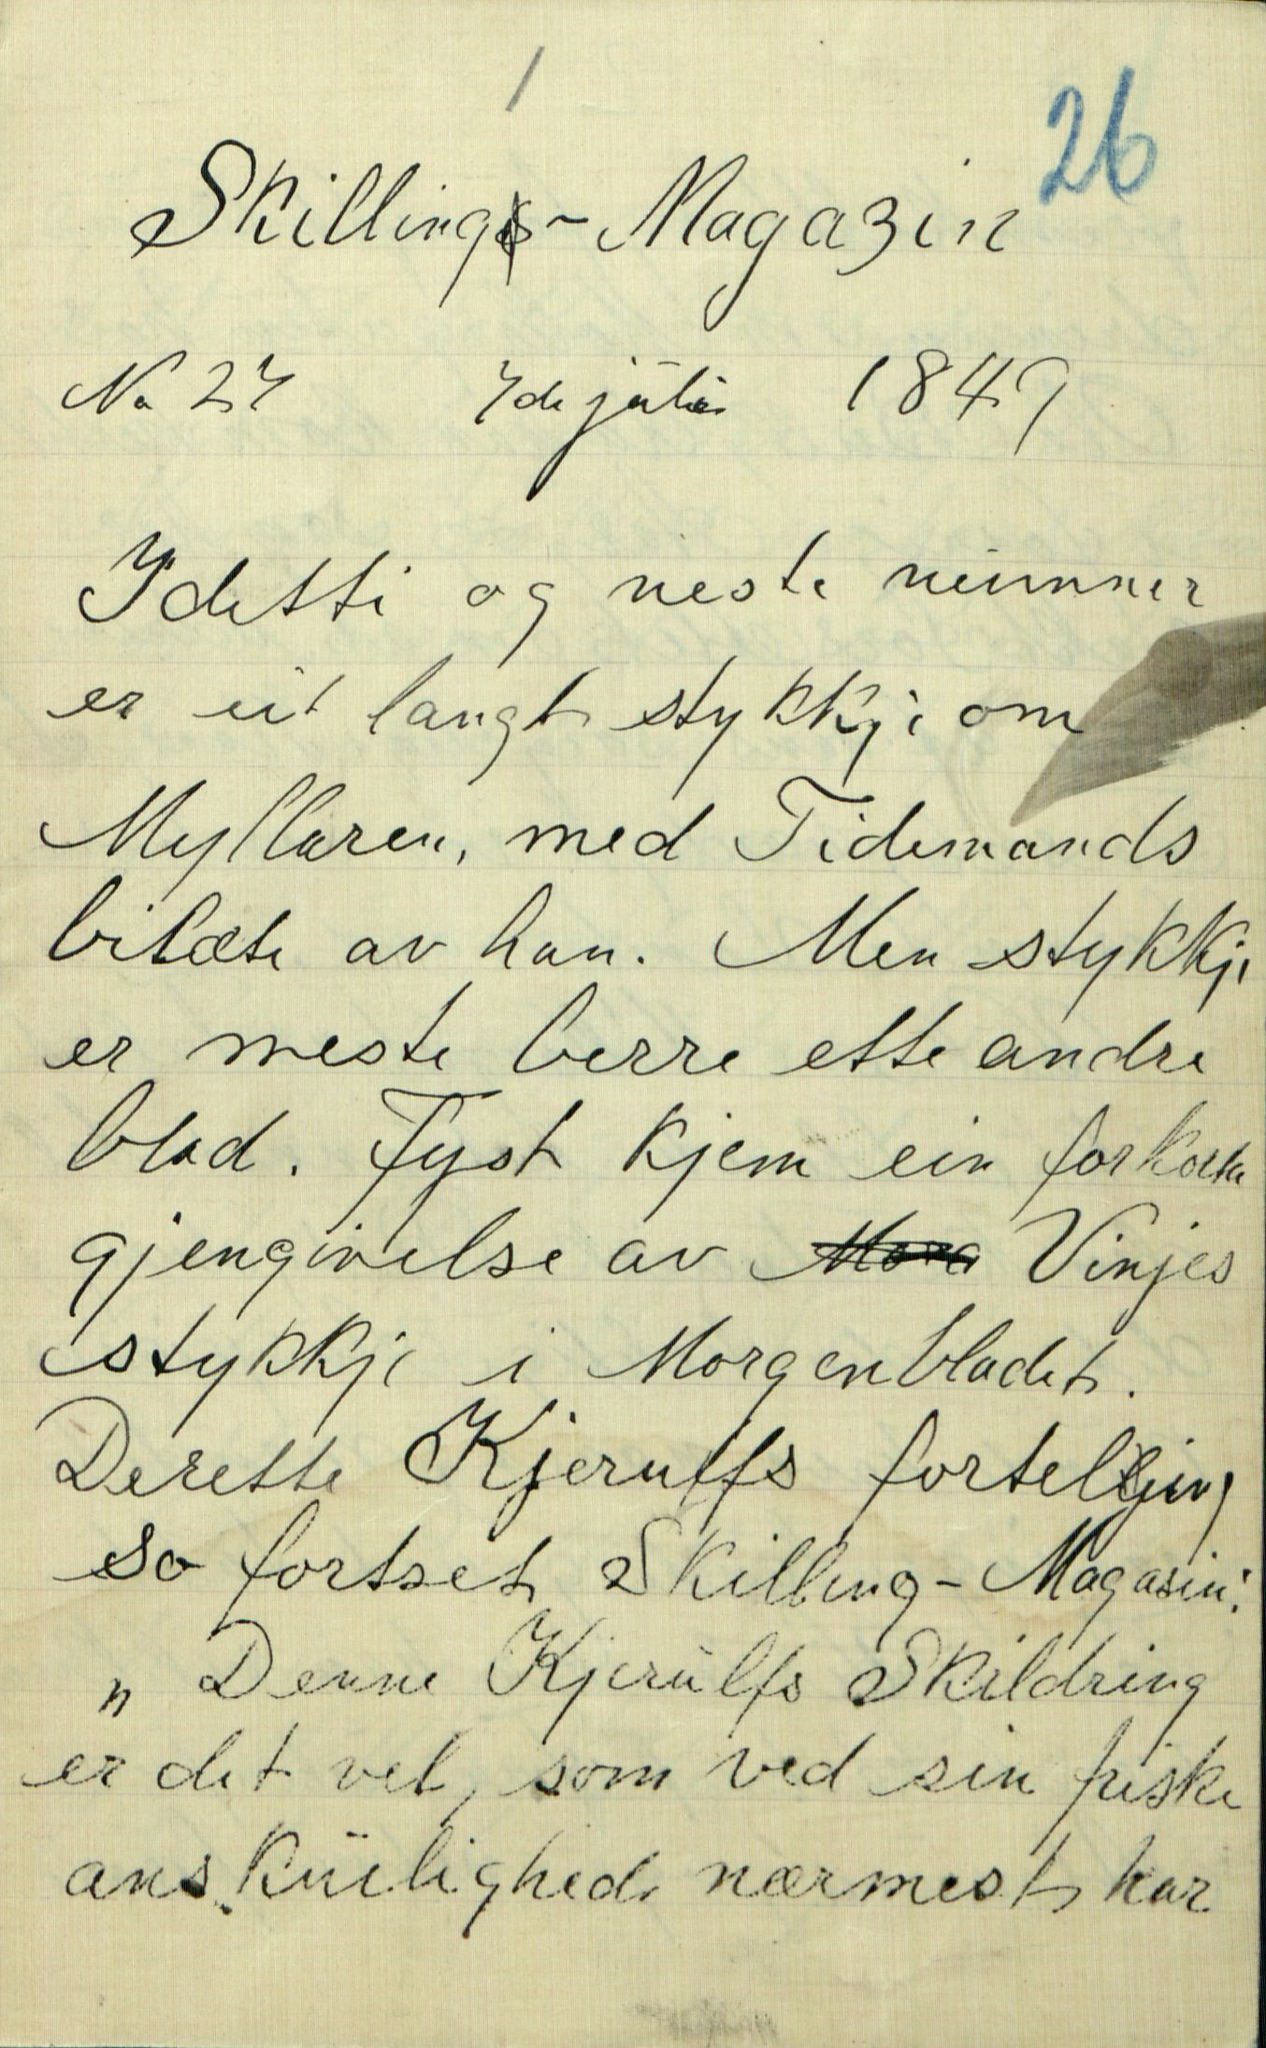 1
26
Skilling-Magazin
No 27 7de juli 1849
I detti og neste nummer
er eit langt stykkji om
Myllaren, med Tidemands
bilæte av han. Men stykkji
er meste berre ette andre
blad. Fyst kjem ein forkorta
gjengivelse av Mora Vinjes
stykkji i Morgenbladet.
Derette Kjerulfs forteljing
so fortset Skilling-Magasin:
„Denne Kjerulfs Skildring
er det vel, som ved sin friske
anskuelighed nærmest har